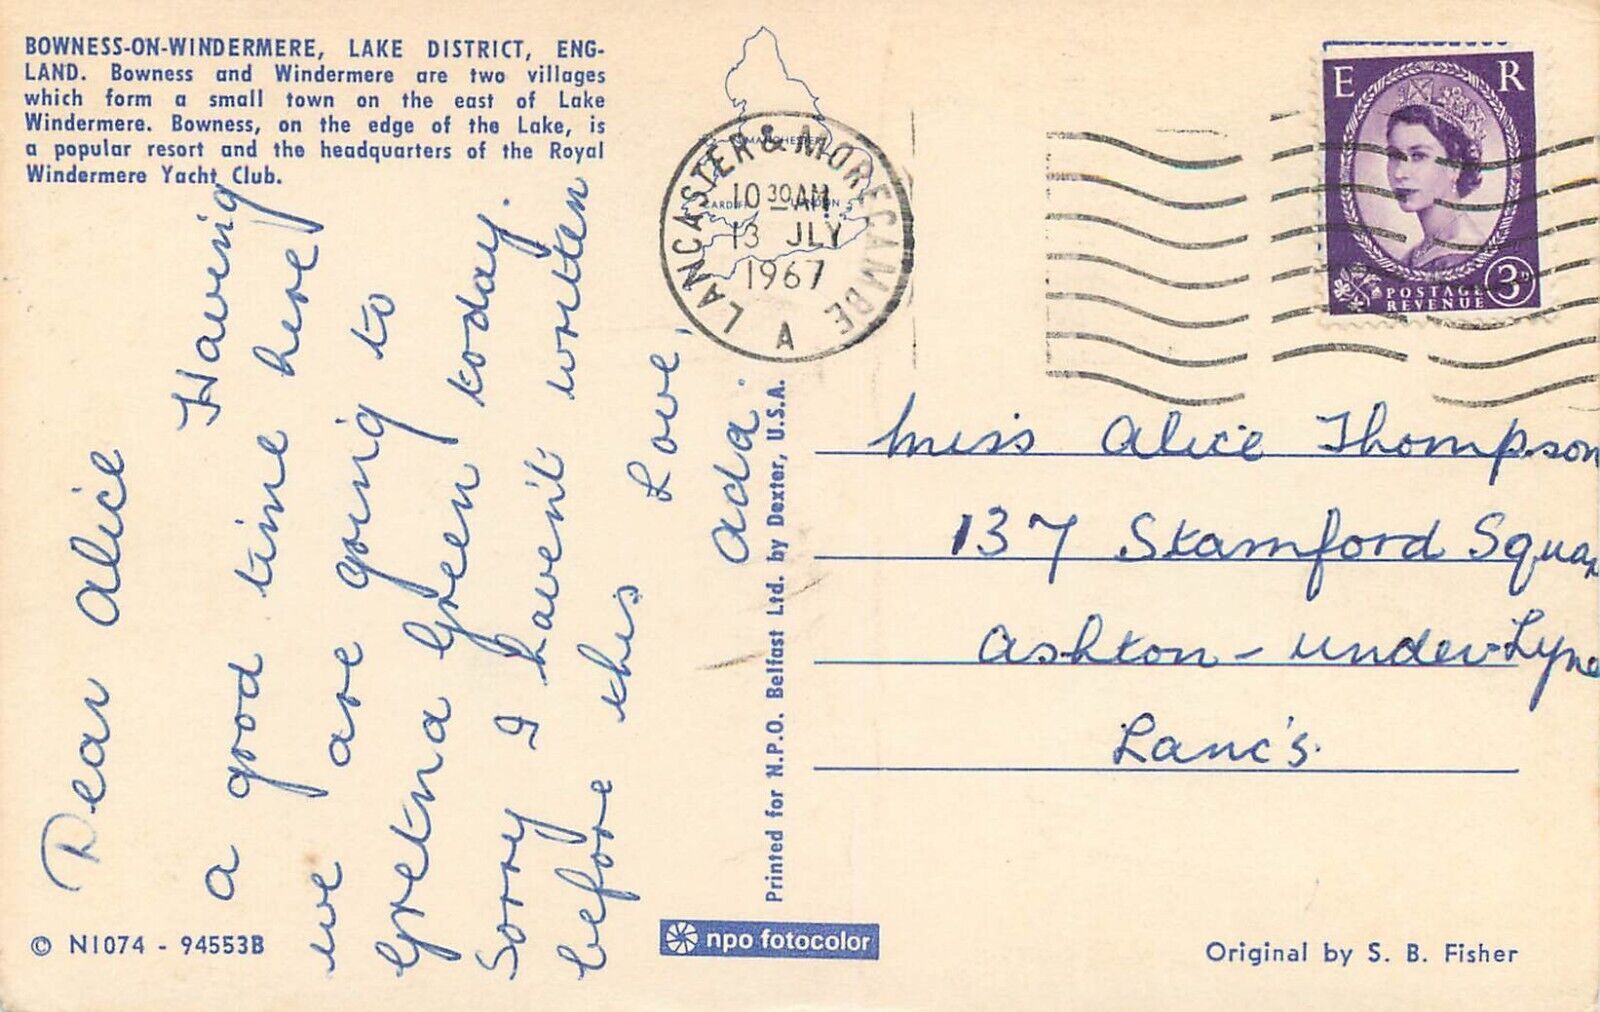 BOWNESS-ON-WINDERMERE, LAKE DISTRICT, ENG-
LAND. Bowness and Windermere are two villages
which form a small town on the east of Lake
Windermere. Bowness, on the edge of the Lake, is
a popular resort and the headquarters of the Royal
Windermere Yacht Club.
Dear Alice
Having
a good time here
we are going to
Gretna Green today.
Sorry I haven't written
before this
Love,
Ada.
© N1074 - 94553B
npo fotocolor
Printed for N.P.O. Belfast Ltd. by Dexter, U.S.A.
MANCHESTER
CARDIFF
LONDON
LANCASTER & MORECAMBE
10 30 AM
13 JLY
1967
A
E R
POSTAGE
REVENUE
3D
Miss Alice Thompson
137 Stamford Square
Ashton-under-Lyne
Lanc's.
Original by S. B. Fisher